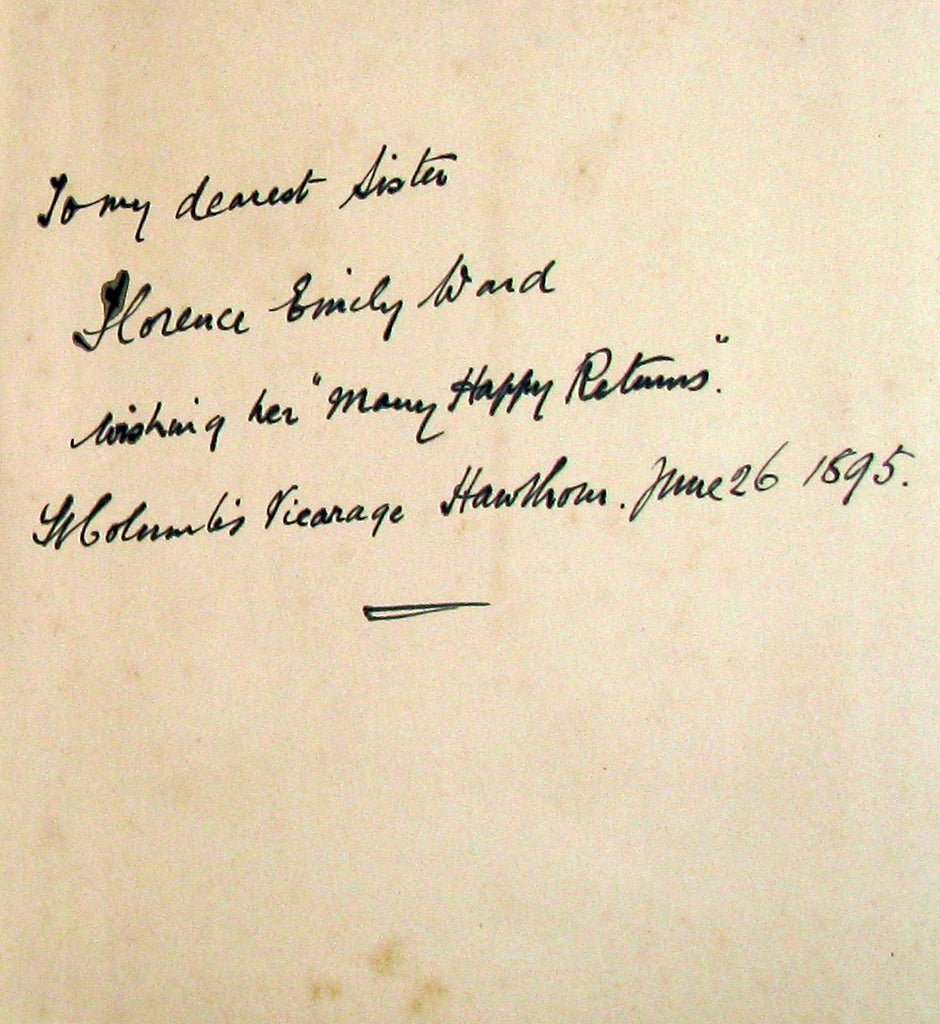 To my dearest Sister
Florence Emily Ward
wishing her "Many Happy Returns".
St Columb's Vicarage Hawthorn. June 26 1895.